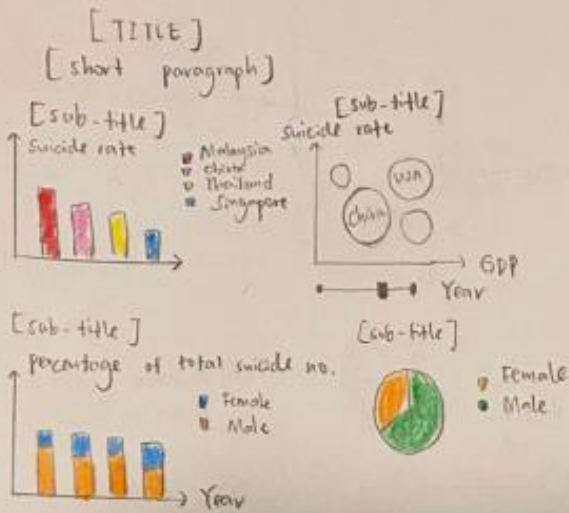 [TITLE]
[short paragraph]
[sub-title]
Suicide rate
Malaysia
China
Thailand
Singapore
[sub-title]
Suicide rate
USA
China
GDP
Year
[sub-title]
percentage of total suicide no.
Female
Male
Year
[sub-title]
Female
Male